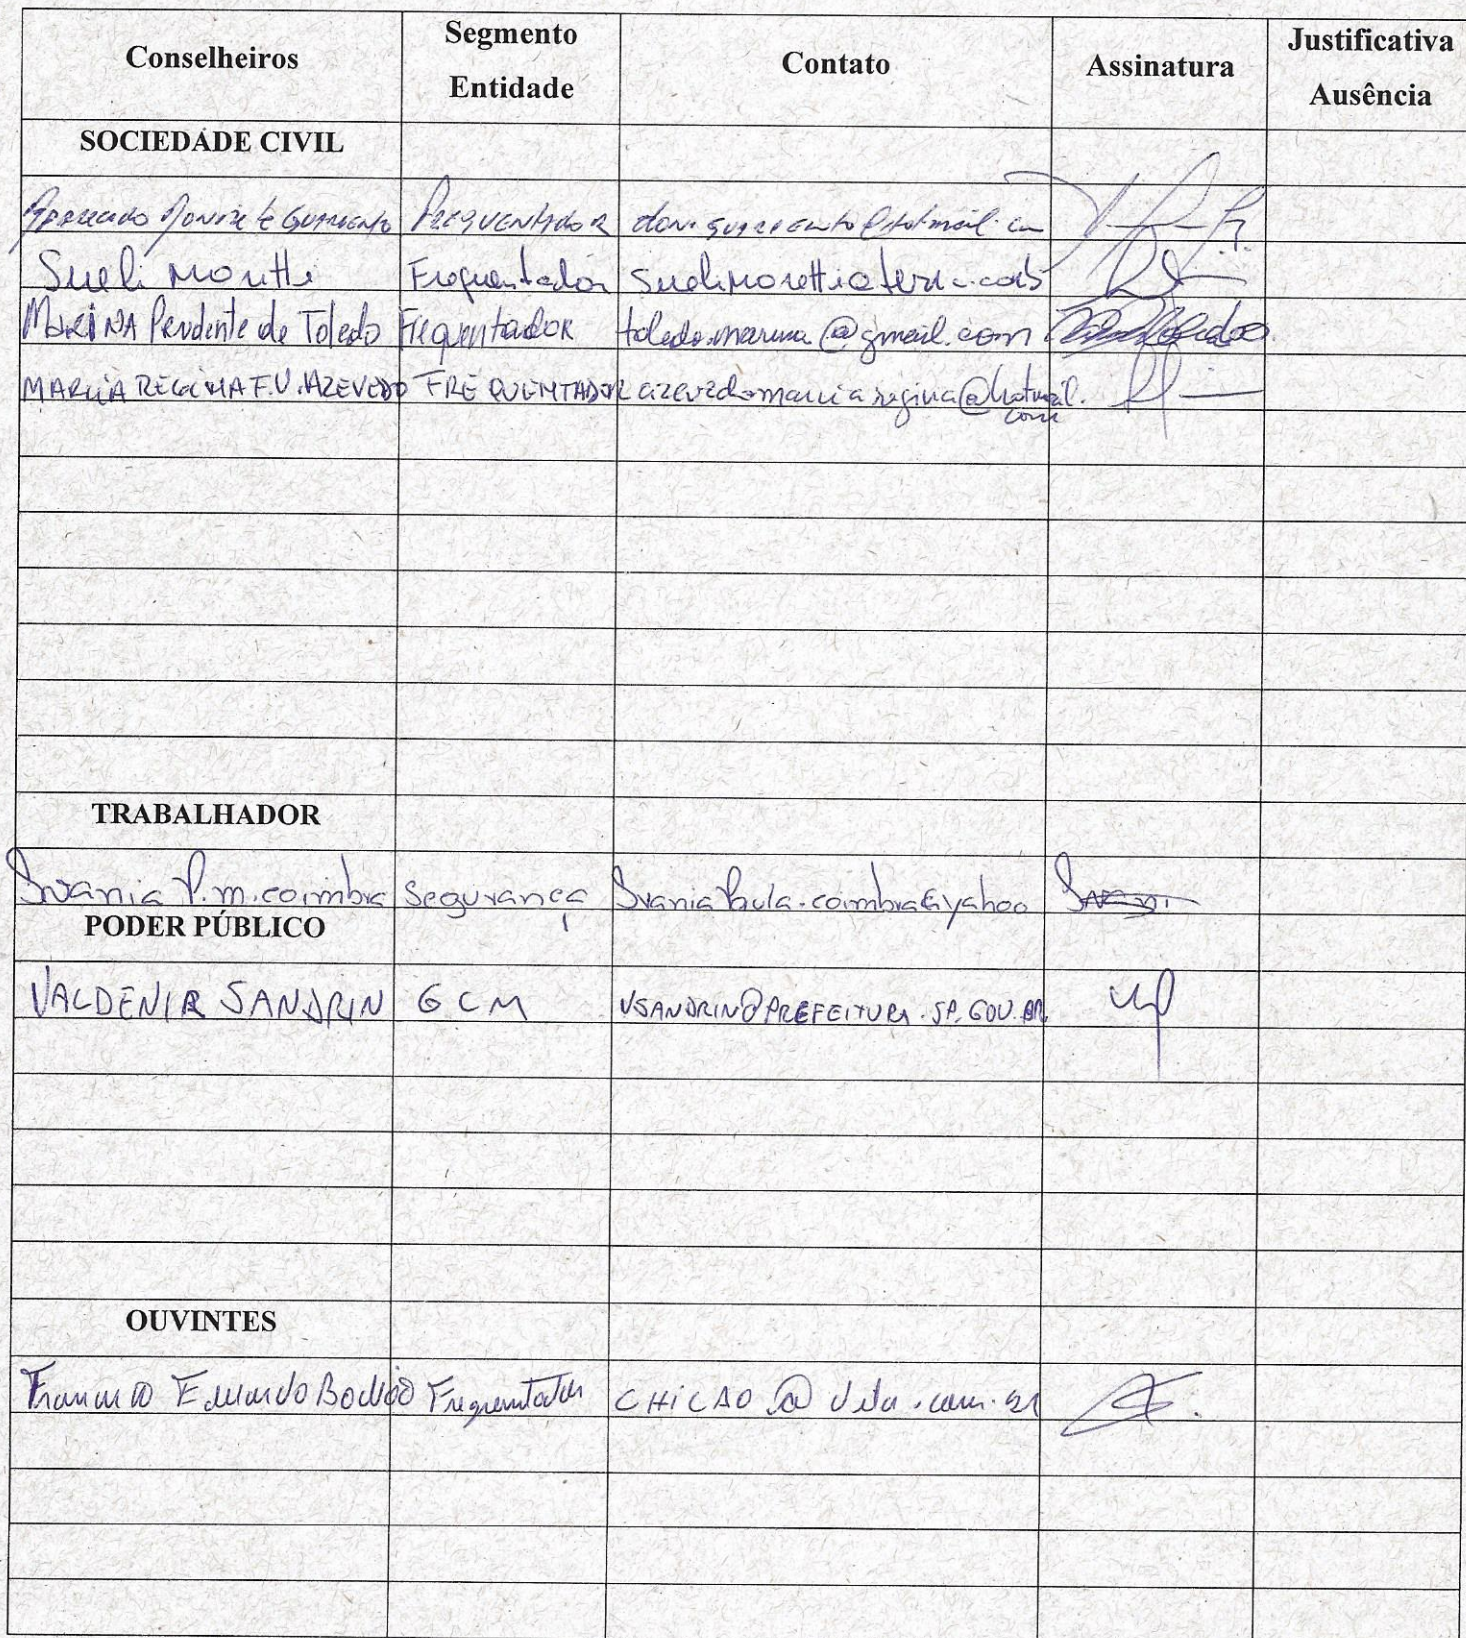 Conselheiros Segmento Entidade Contato Assinatura Justificativa Ausência
SOCIEDADE CIVIL
FREQUENTADOR
Sueli Moretti Frequentador suelimoretti@terra.com
MARINA Prudente de Toledo Frequentador toledo.marina@gmail.com
MARCIA REGINA F.V. AZEVEDO FREQUENTADOR azevedomarciaregina@hotmail.
com
TRABALHADOR
Ivania P.m. coimbra Segurança IvaniaPaula.coimbra@yahoo
PODER PÚBLICO
VALDENIR SANDRIN GCM VSANDRIN@PREFEITURA.SP.GOV.BR
OUVINTES
Eduardo Frequentador CHICAO @